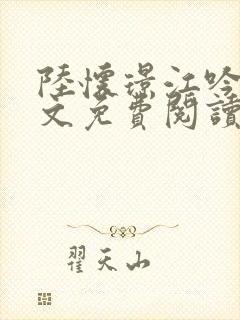 陸懷璟江吟
文免費閱讀
翟天山